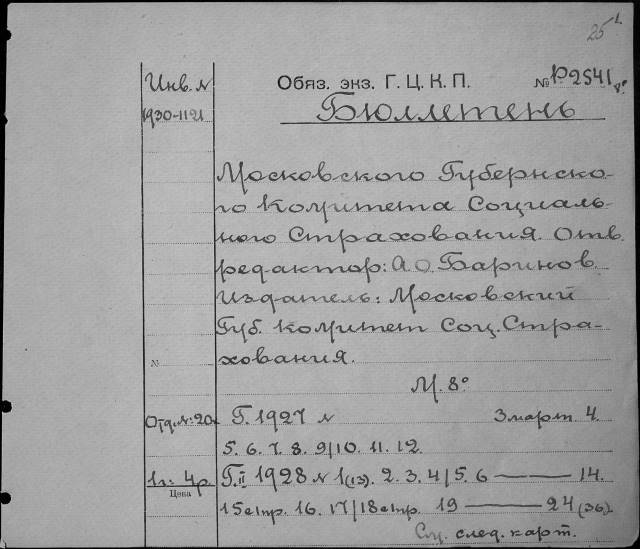 25 1.
Инв. N
Обяз. экз. Г. Ц. К. П.
№ Р2541
1930-1121
Бюллетень
Московского Губернско-
го Комитета Социаль-
ного Страхования. Отв.
редактор: А.О. Баринов.
Издатель: Московский
Губ. Комитет Соц. Стра-
хования.
№
М. 8°
Отд. №: 20к Г. 1927 N 3 март. 4.
5. 6. 7. 8. 9/10. 11. 12.
1 г: 4р. Г. II 1928 N 1(13). 2. 3. 4/5. 6 — 14.
Цена
15 с 1 пр. 16. 17/18 с 1 пр. 19 — 24 (36).
См. след. карт.